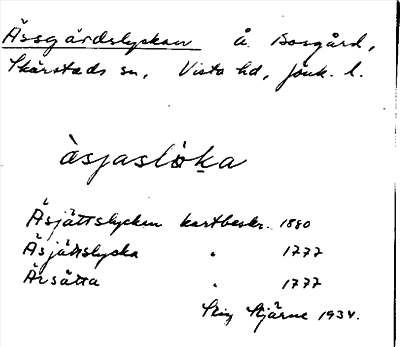 Ässgärdslyckan å. Bosgård,
Skärstads sn, Vista hd, Jönk. l.
àsjaslòka
Äsjättslycken kartbeskr. 1880
Äsjättslycka " 1777
Äsätta " 1777
Stig Stjärne 1934.